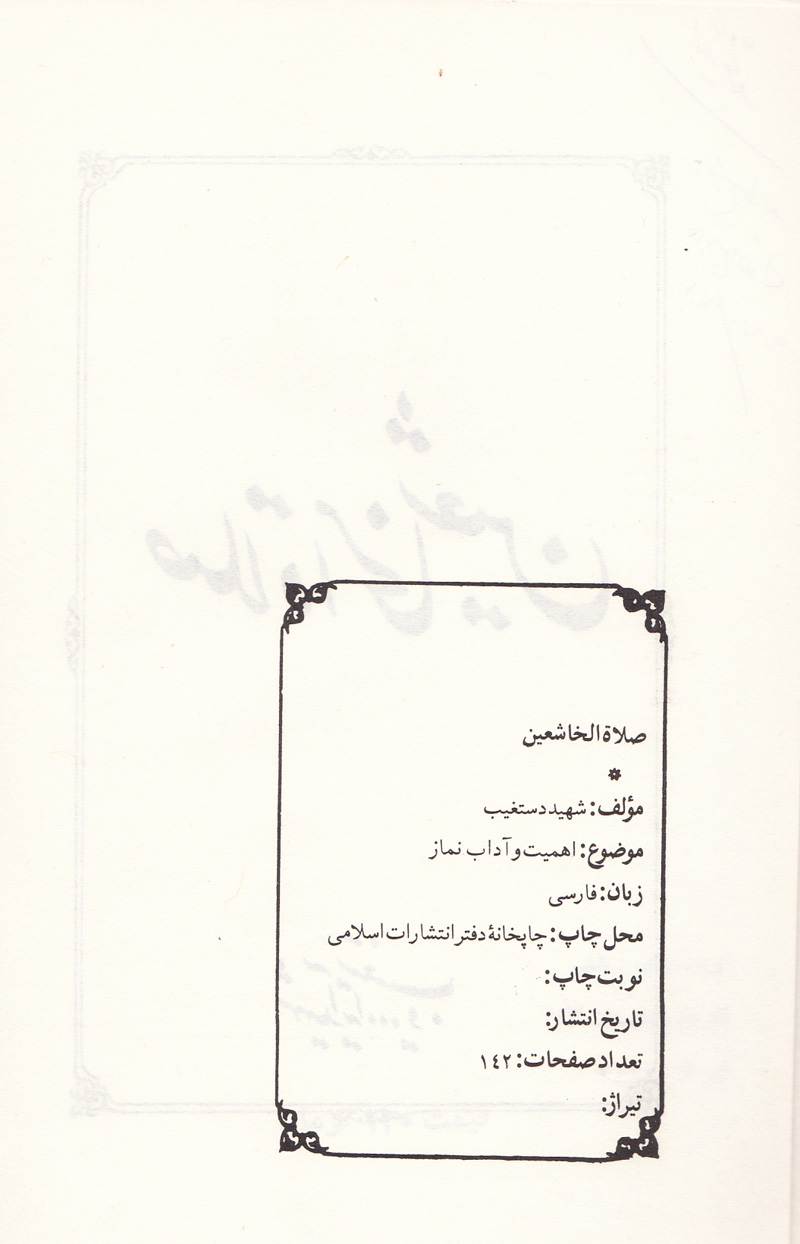 صلاة الخاشعین
*
مؤلف: شهید دستغیب
موضوع: اهمیت و آداب نماز
زبان: فارسی
محل چاپ: چاپخانهٔ دفتر انتشارات اسلامی
نوبت چاپ:
تاریخ انتشار:
تعداد صفحات: ١٤٢
تیراژ: